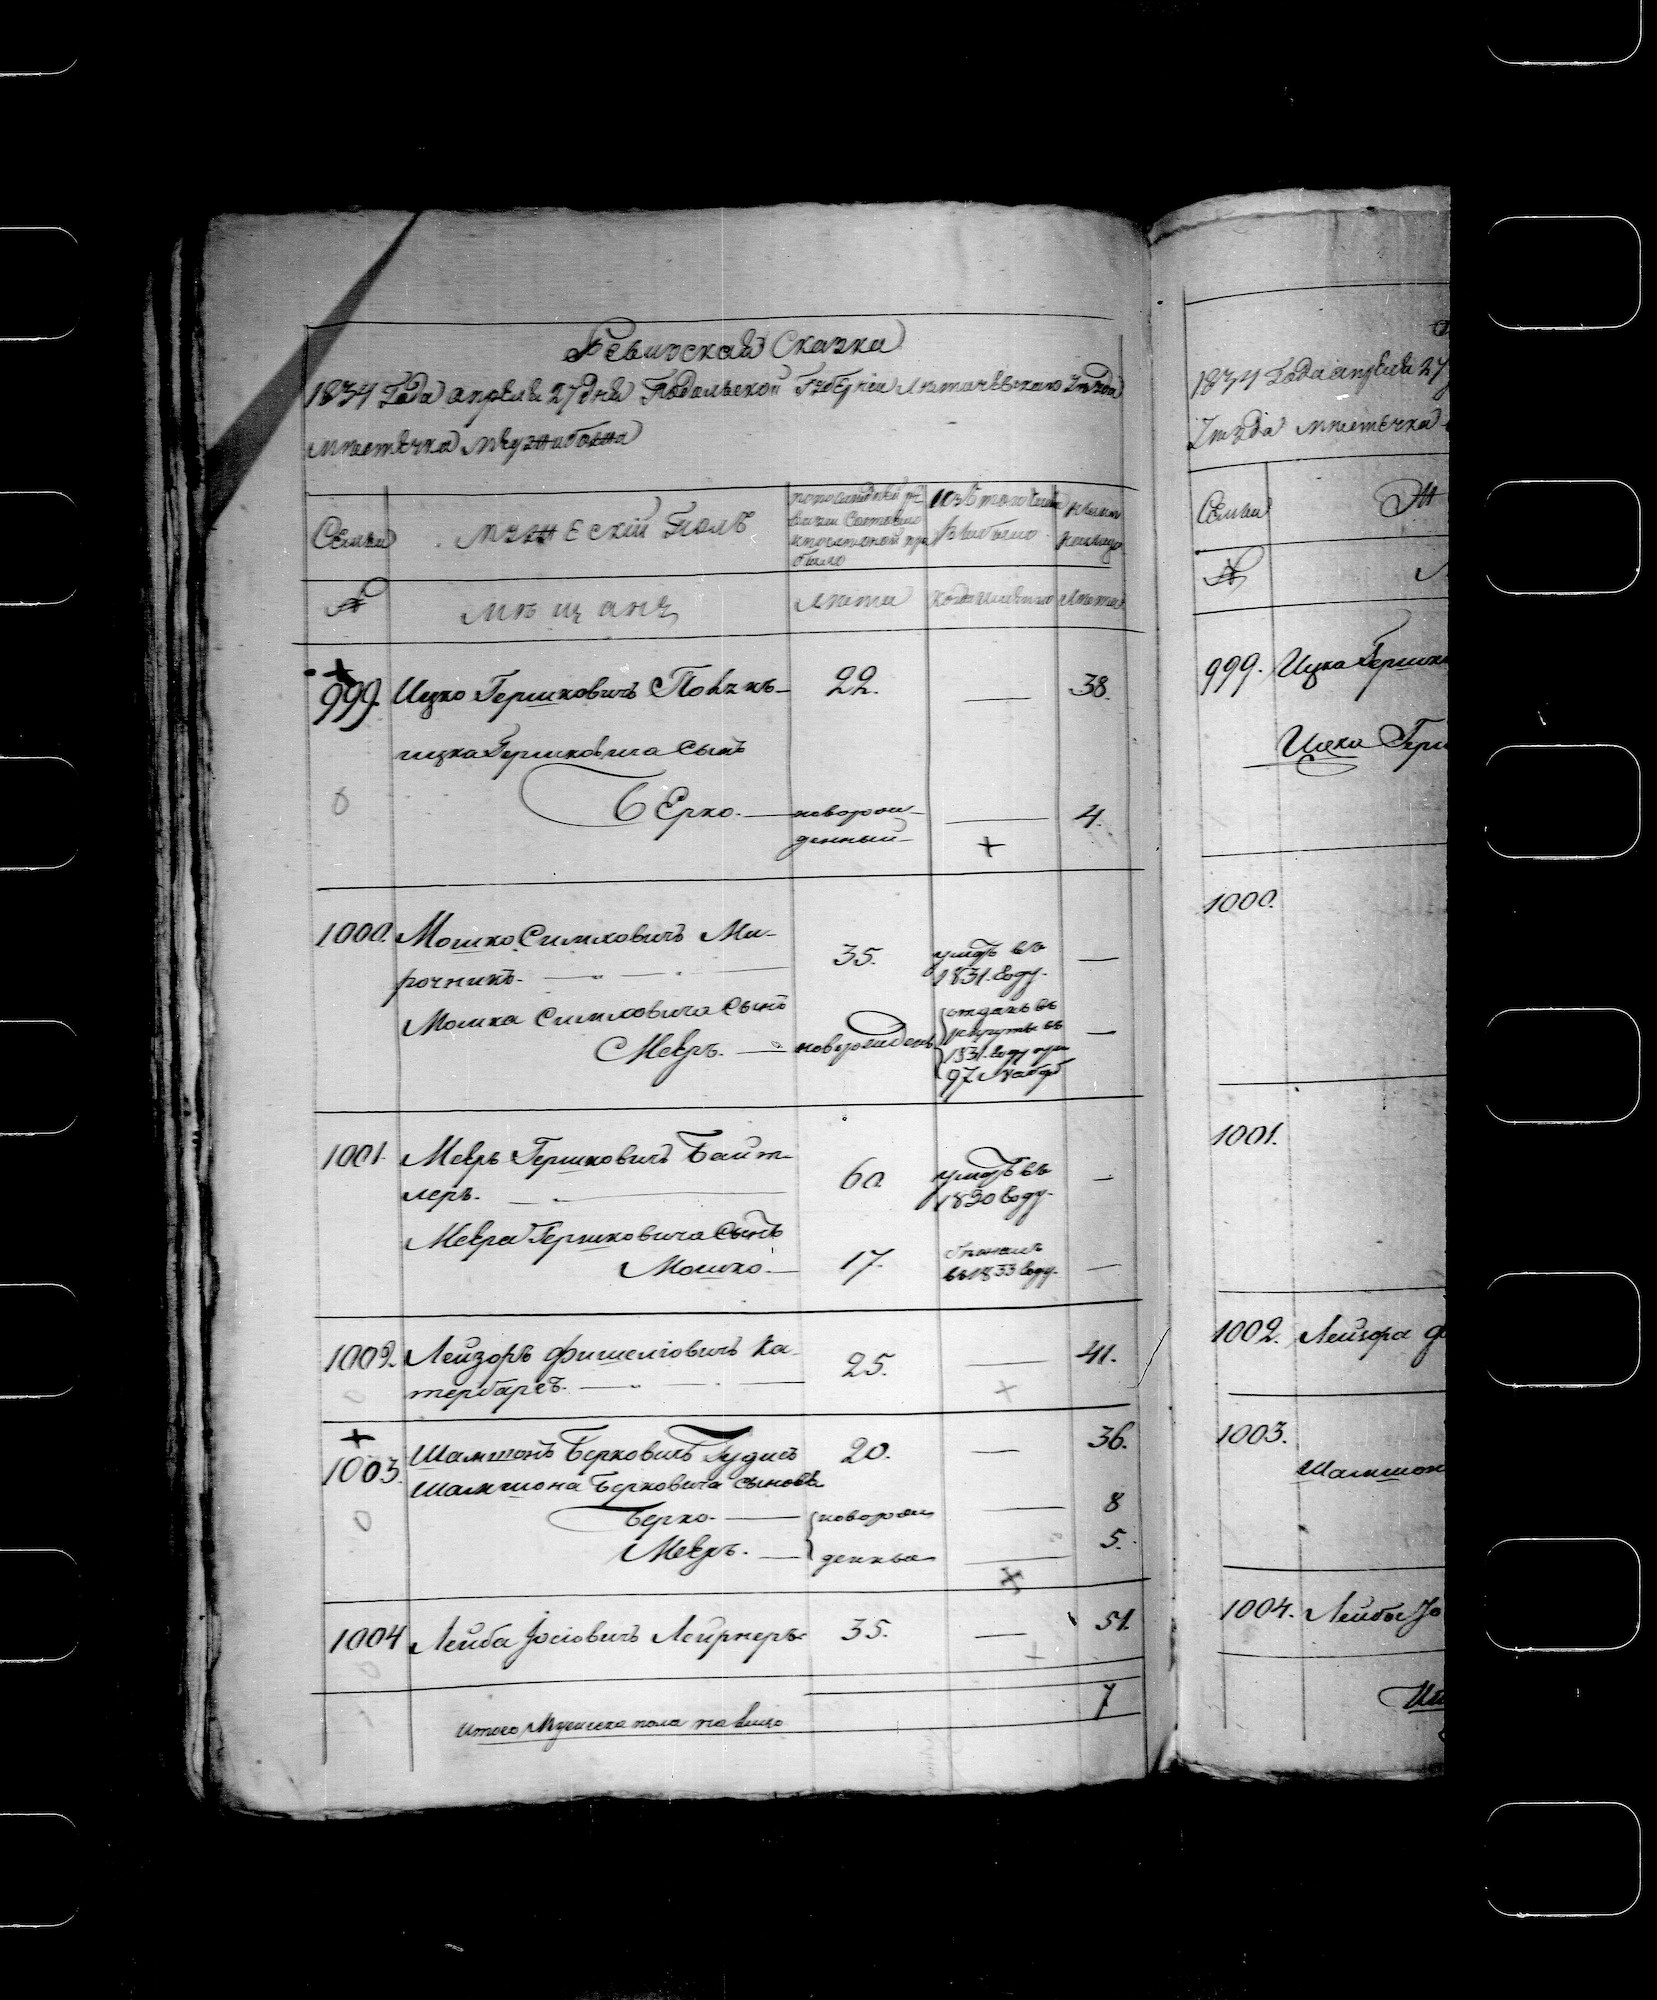 Ревизская Сказка
1834 Года апреля 27 дня Подольской Губерніи Летичевскаго Уезда
местечка Межибожа
Семьи
мужескій Полъ
по последней ре
визіи состояло
и после оной при
было
Изъ того числа
Выбыло
Ныне
на лицо
№
мещанъ
Лета
Когда именно
Лета
999. Ицко Гершковичъ 22. — 38.
Ицка Гершковича сынъ
Берко. — новорож-
денный — — 4.
1000. Мошко Симховичъ Ми-
рочникъ. — 35. умеръ въ
1831. году. —
Мошка Симховича сынъ
Мееръ. — новорожденъ отданъ въ
рекруты въ
1831. году при
97 наборе —
1001. Мееръ Гершковичъ Байт-
леръ. — 60. умеръ въ
1830 году. —
Меера Гершковича сынъ
Мошко. — 17. бежалъ
въ 1833 году. —
1002. Лейзоръ Фишелiовичъ Ка-
25. — 41.
1003. Шамшонъ Берковичъ Гудисъ 20. — 36.
Шамшона Берковича сыновья
Берко. — новорож — 8
Мееръ. — денные — 5.
1004 Лейба Іосіовичъ 35. — 51.
Итого Мужеска пола на лицо 7
1834 Года апреля 27
Уезда местечка
Семьи
Ж
№
999. Ицка Гершк
Ицка Герш
1000.
1001.
1002. Лейзора Ф
1003.
Шамшон
1004. Лейбы Іо